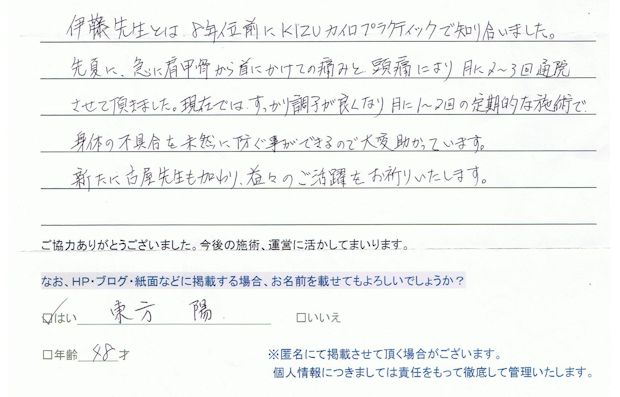 伊藤先生とは、8年位前にKIZUカイロプラクティックで知り合いました。
先夏に、急に肩甲骨から首にかけての痛みと、頭痛により月に2〜3回通院
させて頂きました。現在では、すっかり調子が良くなり月に1〜2回の定期的な施術で、
身体の不具合を未然に防ぐ事ができるので大変助かっています。
新たに古屋先生も加わり、益々のご活躍をお祈りいたします。
ご協力ありがとうございました。今後の施術、運営に活かしてまいります。
なお、HP・ブログ・紙面などに掲載する場合、お名前を載せてもよろしいでしょうか？
☑はい 東方 陽 □いいえ
□年齢 48 才 ※匿名にて掲載させて頂く場合がございます。
個人情報につきましては責任をもって徹底して管理いたします。